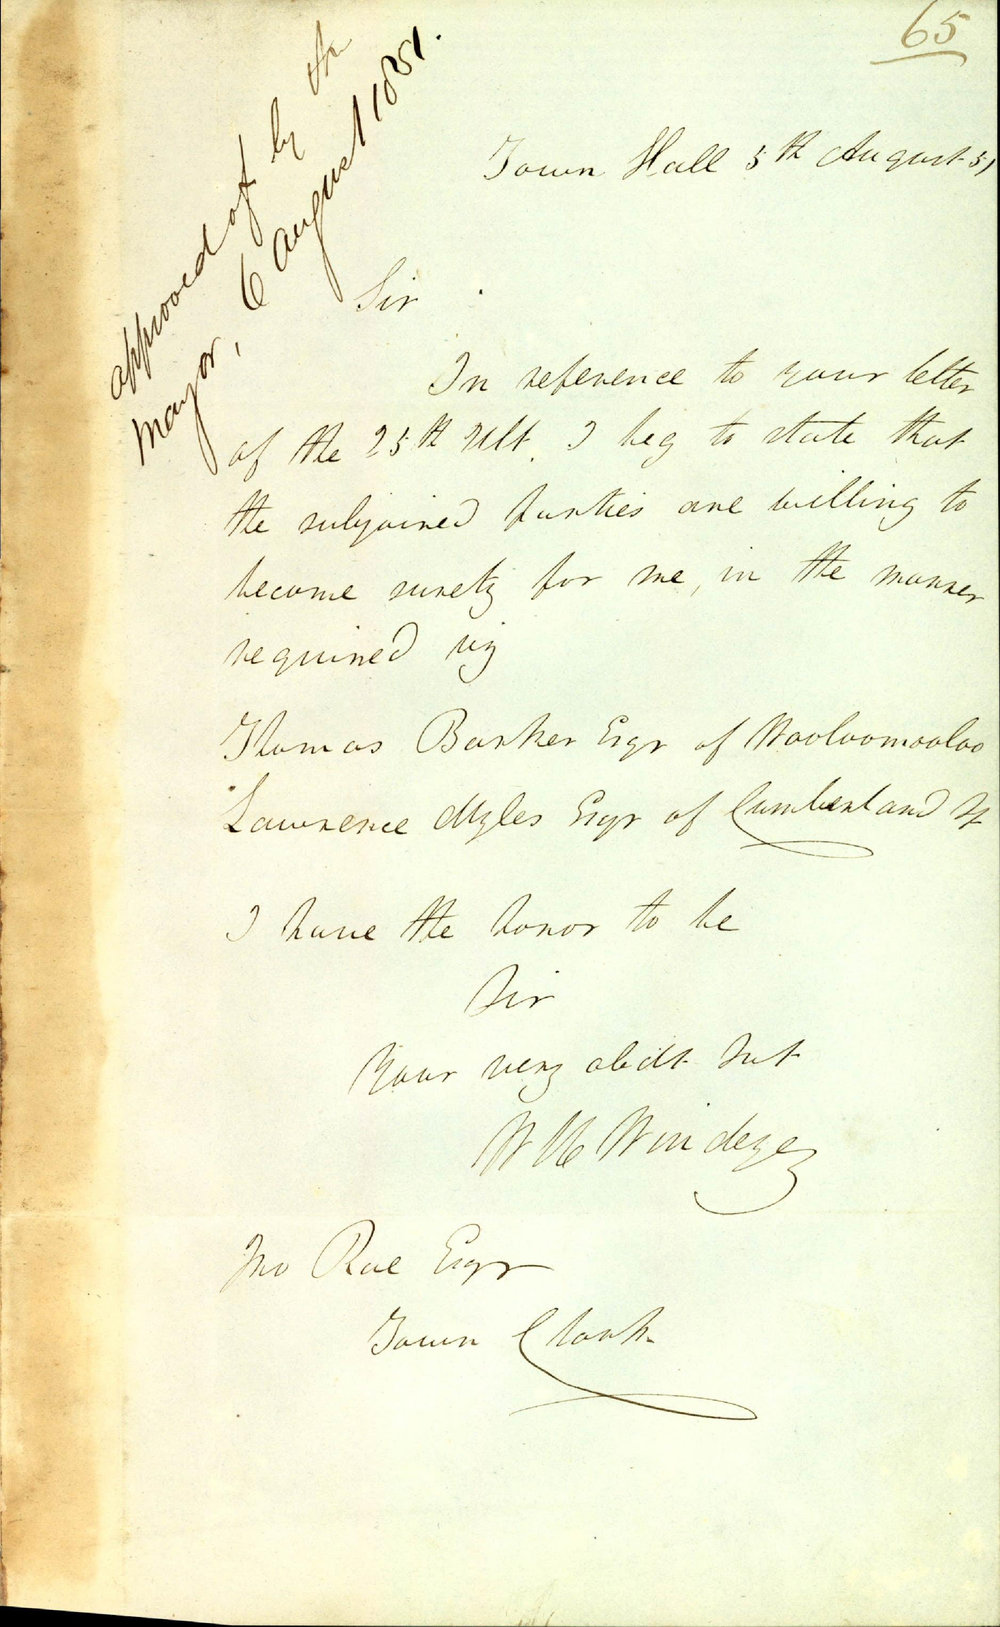 65
approved of by the
Mayor, 6 August 1851.
Town Hall 5th August 51
Sir
In reference to your letter
of the 25th Ult. I beg to state that
the subjoined parties are willing to
become surety for me, in the manner
required viz
Thomas Barker Esqr of Wooloomooloo
Lawrence Myles Esqr of Cumberland St
I have the honor to be
Sir
Your very obdt Svt
W H Windeyer
Jno Rae Esqr
Town Clerk